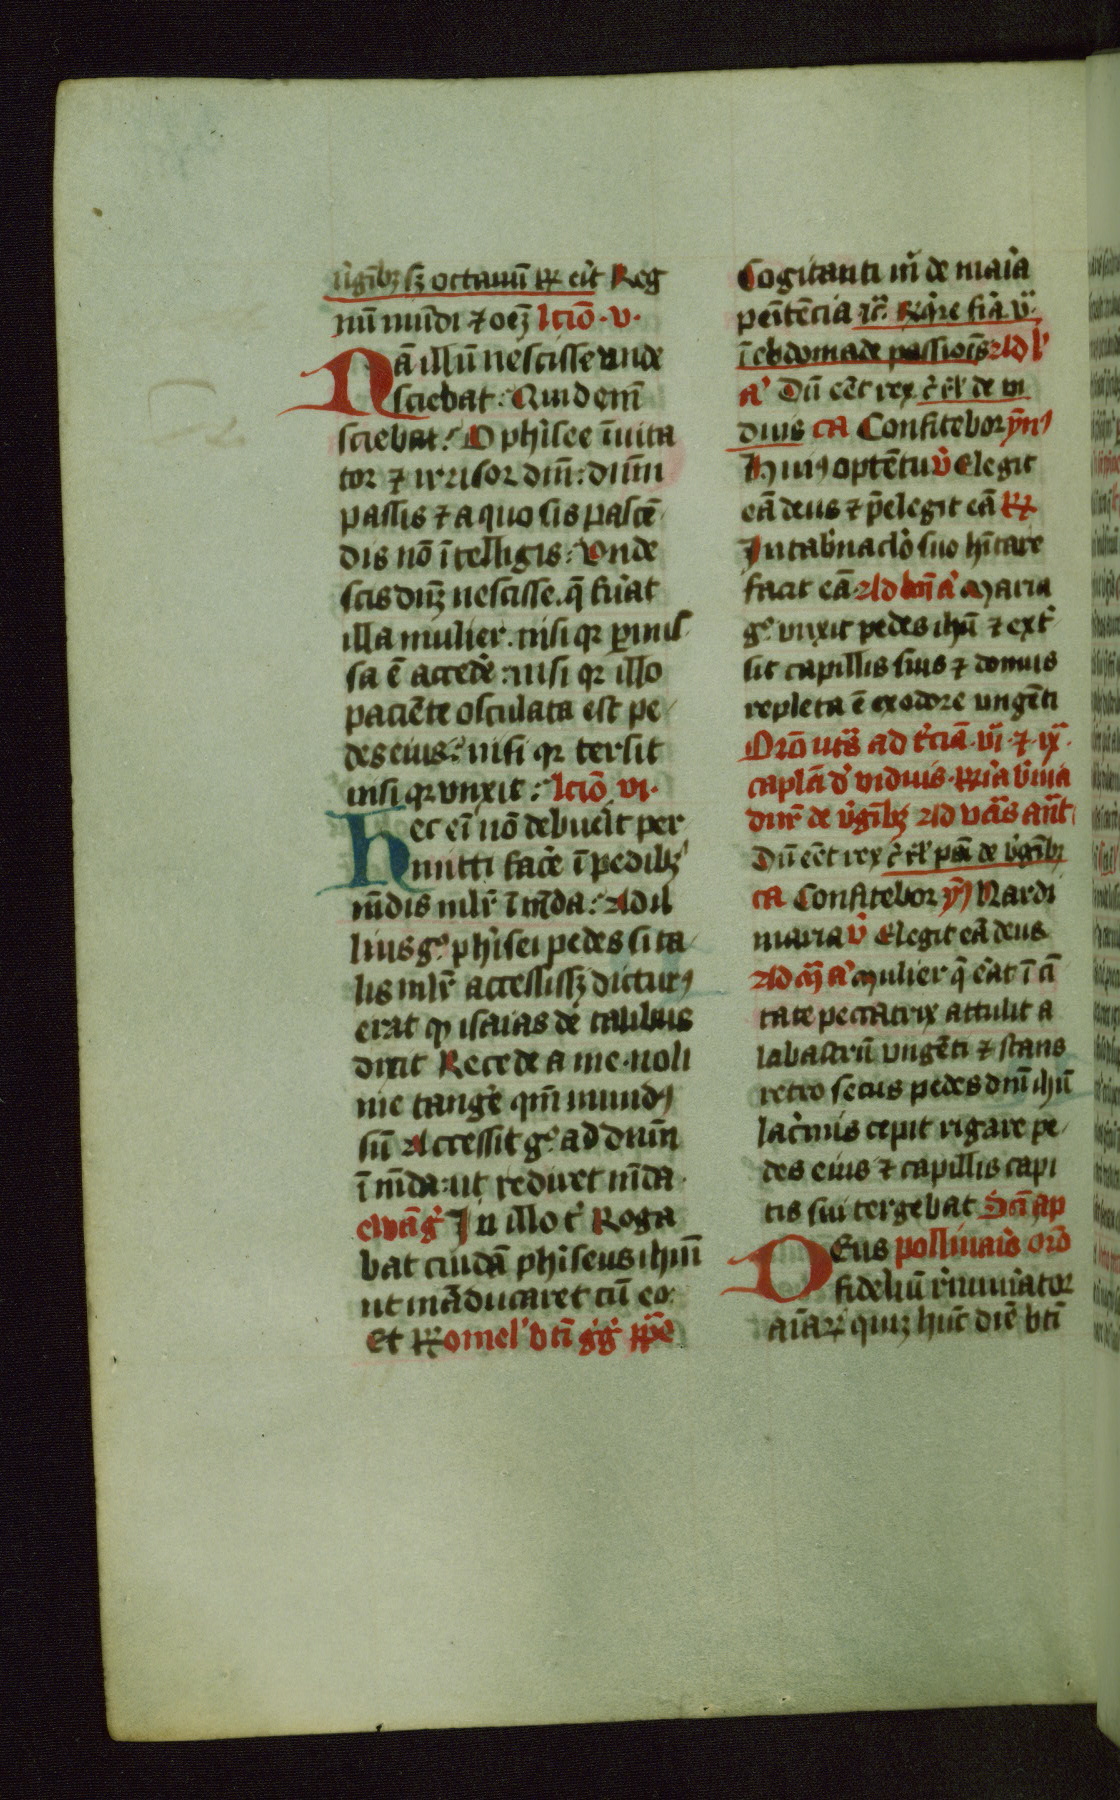 v̓gīb₃ s₃ octauū ꝶ eīt Reg
nū mūdi ⁊ oēꝫ lcīo · v ·
Nā illū nescisse unde
sciebat : Quid em̄
sciebat : O phīsee īuita
tor ⁊ irrisor dn̄i : dn̄m
passis ⁊ a quo sis pascē
dis nō ītelligis : Vnde
scis dn̄ꝫ nescisse . q̄ fūat
illa mulier . nisi qꝛ ꝑmis
sa ē accedē : nisi qꝛ illo
paciēte osculata est pe
des eius : nisi qꝛ tersit
nisi qꝛ vnxit : lcīo vi ·
Hec eī nō debuēit per
mitti facē ī pedib₃
mūdis mlr̄ īmūda : Ad il
lius gͦ phīsei pedes si ta
lis mlr̄ accessissꝫ dicturꝰ
erat qꝫ isaias de talibus
dixit Recede a me · noli
me tangē qm̄ mundꝰ
sū Accessit gͦ ad dn̄m
īmūda : ut rediret mūda ·
ewāg̓ In illo t̓ Roga
bat quidā phīseus ihm̄
ut māducaret cū eo :
Et ꝶ omel̓ bt̄i g̓g̓ ꝑpe
Cogitanti m̄ de maīa
penītēcia · ꝛc̄ Rq̓re fīa v̄
ī ebdomade passiois Ad l̓
a̓ Dū eēt rex c̄ rl̓ de vi
duis ca Confitebor ym̄ꝰ
Huiꝰ optētu v̓ Elegit
eā deus ⁊ p̄elegit eā ꝶ
In tab̓naclo̓ suo hītare
facit eā · Ad bn̄ a̓ Maria
gͦ vnxit pedes ihū ⁊ ext̓
sit capillis suis ⁊ domus
repleta ē ex odore ungēti
Orō ut s̄ ad t̓ciā · vī · ⁊ ix̄ ·
caplā d̓ viduis · ꝶia v̓niā
diur̓ de v̓gīb₃ Ad vc̄as an̄t
Dū eēt rex c̄ rl̓ psā de v̓gīb₃
ca Confitebor ym̄ꝰ Nardi
maria v̓ Elegit eā deus
Ad m̄ a̓ Mulier q̄ eāt ī ci
tate peccatrix attulit a
labastrū vngēti ⁊ stans
retro secus pedes dn̄i ihū
lac̓mis cepit rigare pe
des eius ⁊ capillis capi
tis sui tergebat Scī ap
Deus pollinaīs orō
fideliū r̓muniator
aīaꝝ quiꝫ huc̄ diē bt̄i